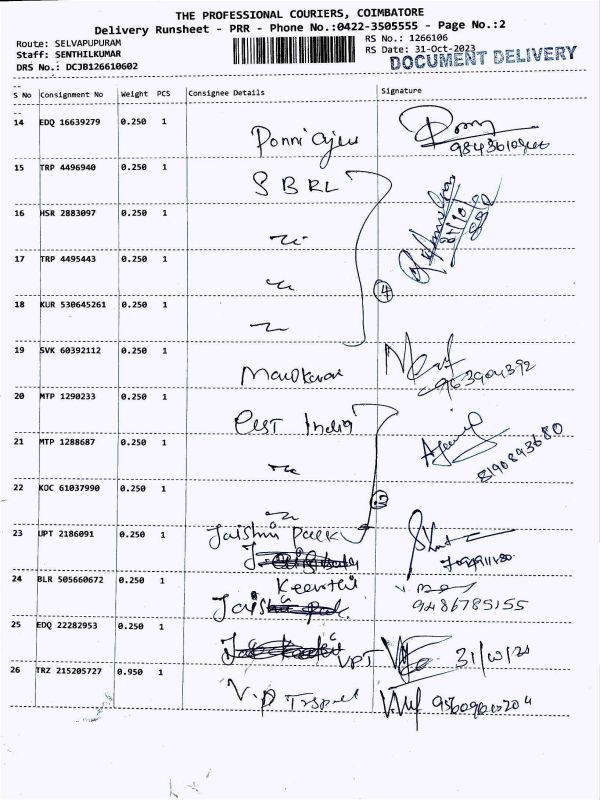 THE PROFESSIONAL COURIERS, COIMBATORE
Delivery Runsheet - PRR - Phone No.:0422-3505555 - Page No.:2
Route: SELVAPUPURAM
RS No.: 1266106
Staff: SENTHILKUMAR
RS Date: 31-Oct-2023
DRS No.: DCJB126610602
DOCUMENT DELIVERY
S No Consignment No Weight PCS Consignee Details Signature
14 EDQ 16639279 0.250 1
Ponni
15 TRP 4496940 0.250 1
SBRL
16 HSR 2883097 0.250 1
17 TRP 4495443 0.250 1
4
18 KUR 530645261 0.250 1
19 SVK 60392112 0.250 1
20 MTP 1290233 0.250 1
India
21 MTP 1288687 0.250 1
8190893680
22 KOC 61037990 0.250 1
23 UPT 2186091 0.250 1
Jaishri
24 BLR 505660672 0.250 1
Keerthi
9486785155
25 EDQ 22282953 0.250 1
VPT
26 TRZ 215205727 0.950 1
V.P